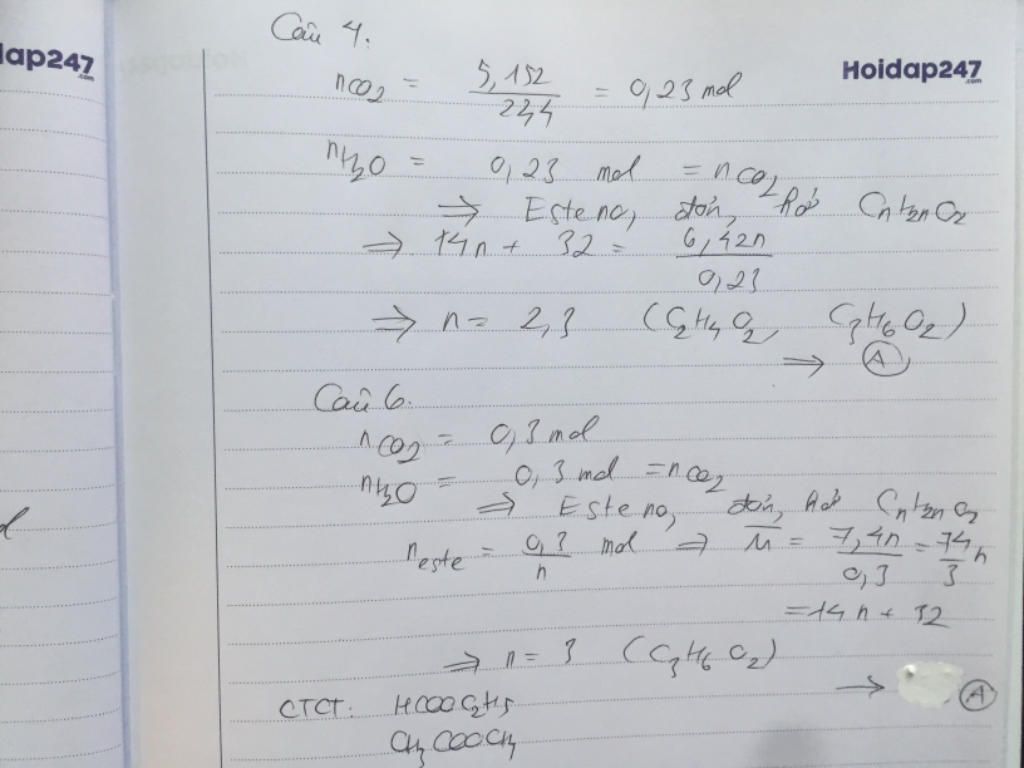 dap247
.com
Hoidap247
.com
Câu 4:
nCO2 = 5,152/22,4 = 0,23 mol
nH2O = 0,23 mol = nCO2
⇒ Este no, đơn, hở CnH2nO2
⇒ 14n + 32 = 6,42n/0,23
⇒ n = 2,3 (C2H4O2, C3H6O2)
→ A
Câu 6.
nCO2 = 0,3 mol
nH2O = 0,3 mol = nCO2
⇒ Este no, đơn, hở CnH2nO2
neste = 0,3/n mol ⇒ M̅ = 7,4n/0,3 = 74/3 n
= 14n + 32
⇒ n = 3 (C3H6O2)
→ A
CTCT: HCOOC2H5
CH3COOCH3